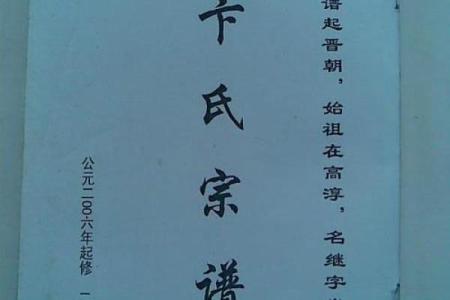 谱起晋朝，始祖在高淳，名继字
卞氏宗谱
公元二00六年起修 一